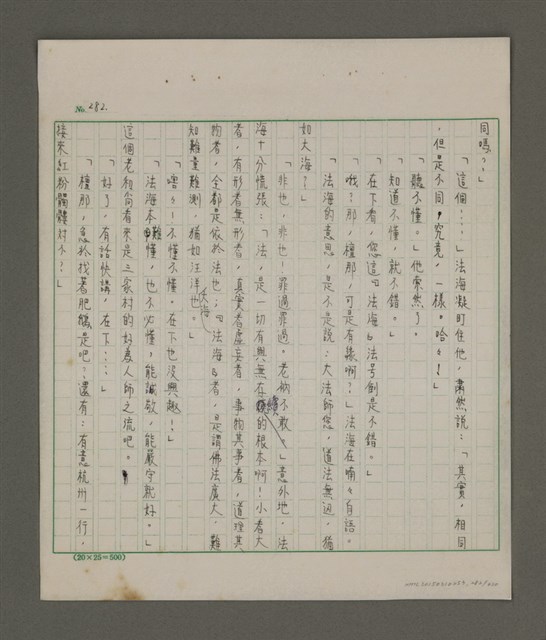 No. 282.
同嗎？」
「這個……」法海凝盯住他，肅然說：「其實，相同
，但是不同，究竟，一樣。哈々！」
「聽不懂。」他索然了。
「知道不懂，就不錯。」
「在下看，您這『法海』法号倒是不錯。」
「哦？那，檀那，可是有緣啊？」法海在喃々自語。
「法海的意思，是不是說：大法師您，道法無边，猶
如大海？」
「非也，非也！罪過罪過。老衲不敢。」意外地，法
海十分慌張：「法，是一切有與無存續的根本啊！小者大
者，有形者無形者，真實者虛妄者，事物其事者，道理其
物者，全都是依於法也；『法海』者，是謂佛法廣大，難
知難量難測，猶如汪洋大海也。」
「嘻々！不懂不懂。在下也沒興趣！」
「法海本難懂，也不必懂；能誠敬，能嚴守就好。」
這個老和尚看來是三家村的好為人師之流吧。
「好了，有話快講，在下……」
「檀那，急於找著肥鱥是吧？還有：有意杭州一行，
接來紅粉髑髏对不？」
(20×25=500)